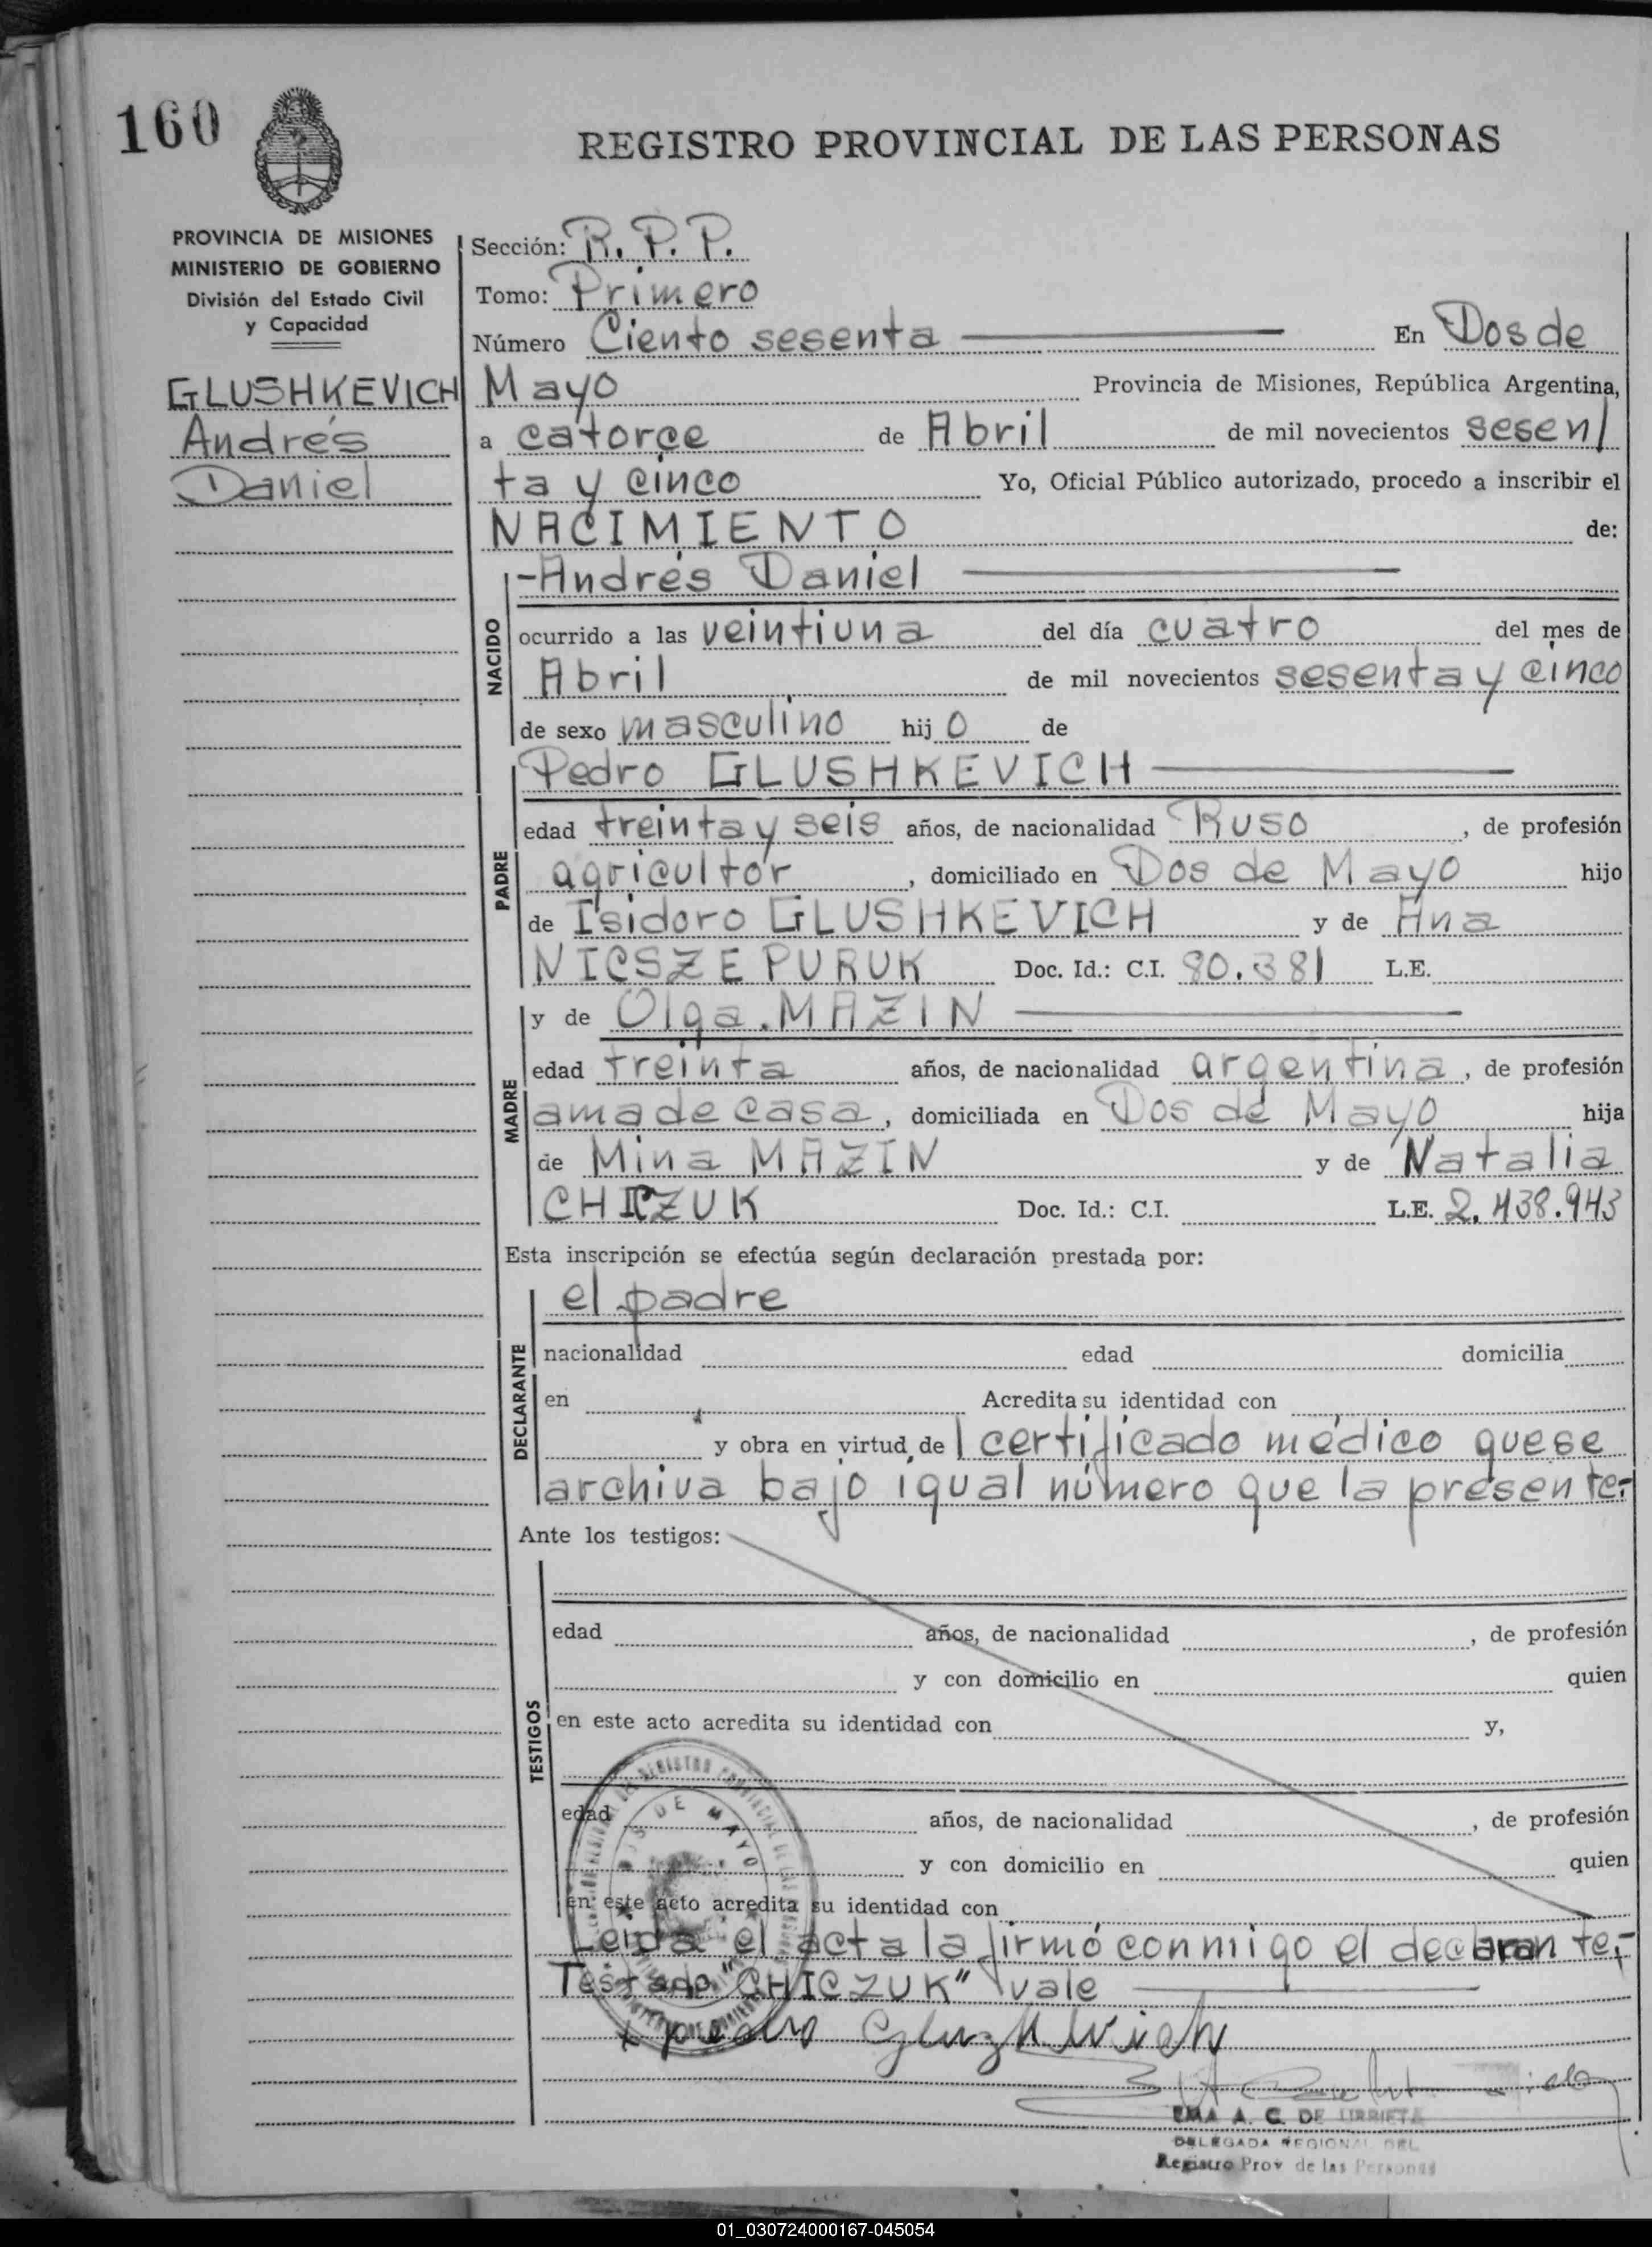 160
REGISTRO PROVINCIAL DE LAS PERSONAS
PROVINCIA DE MISIONES
MINISTERIO DE GOBIERNO
División del Estado Civil
y Capacidad
GLUSHKEVICH
Andrés
Daniel
Sección: R. P. P.
Tomo: Primero
Número Ciento sesenta En Dos de
Mayo Provincia de Misiones, República Argentina,
a catorce de Abril de mil novecientos sesen/
ta y cinco Yo, Oficial Público autorizado, procedo a inscribir el
NACIMIENTO de:
NACIDO
-Andrés Daniel
ocurrido a las veintiuna del día cuatro del mes de
Abril de mil novecientos sesenta y cinco
de sexo masculino hijo de
PADRE
Pedro GLUSHKEVICH
edad treinta y seis años, de nacionalidad Ruso, de profesión
agricultor, domiciliado en Dos de Mayo hijo
de Isidoro GLUSHKEVICH y de Ana
NICSZEPURUK Doc. Id.: C.I. 80.381 L.E.
MADRE
y de Olga. MAZIN
edad treinta años, de nacionalidad argentina, de profesión
ama de casa, domiciliada en Dos de Mayo hija
de Mina MAZIN y de Natalia
CHICZUK Doc. Id.: C.I. L.E. 2.438.943
Esta inscripción se efectúa según declaración prestada por:
DECLARANTE
el padre
nacionalidad edad domicilia
en Acredita su identidad con
y obra en virtud de l certificado médico que se
archiva bajo igual número que la presente.-
Ante los testigos:
TESTIGOS
edad años, de nacionalidad , de profesión
y con domicilio en quien
en este acto acredita su identidad con y,
edad años, de nacionalidad , de profesión
y con domicilio en quien
en este acto acredita su identidad con
Leida el acta la firmó conmigo el declarante,-
Testado "CHICZUK" vale
DOS DE MAYO
EMA A. C. DE URRIETA
DELEGADA REGIONAL DEL
Registro Prov de las Personas
01_030724000167-045054